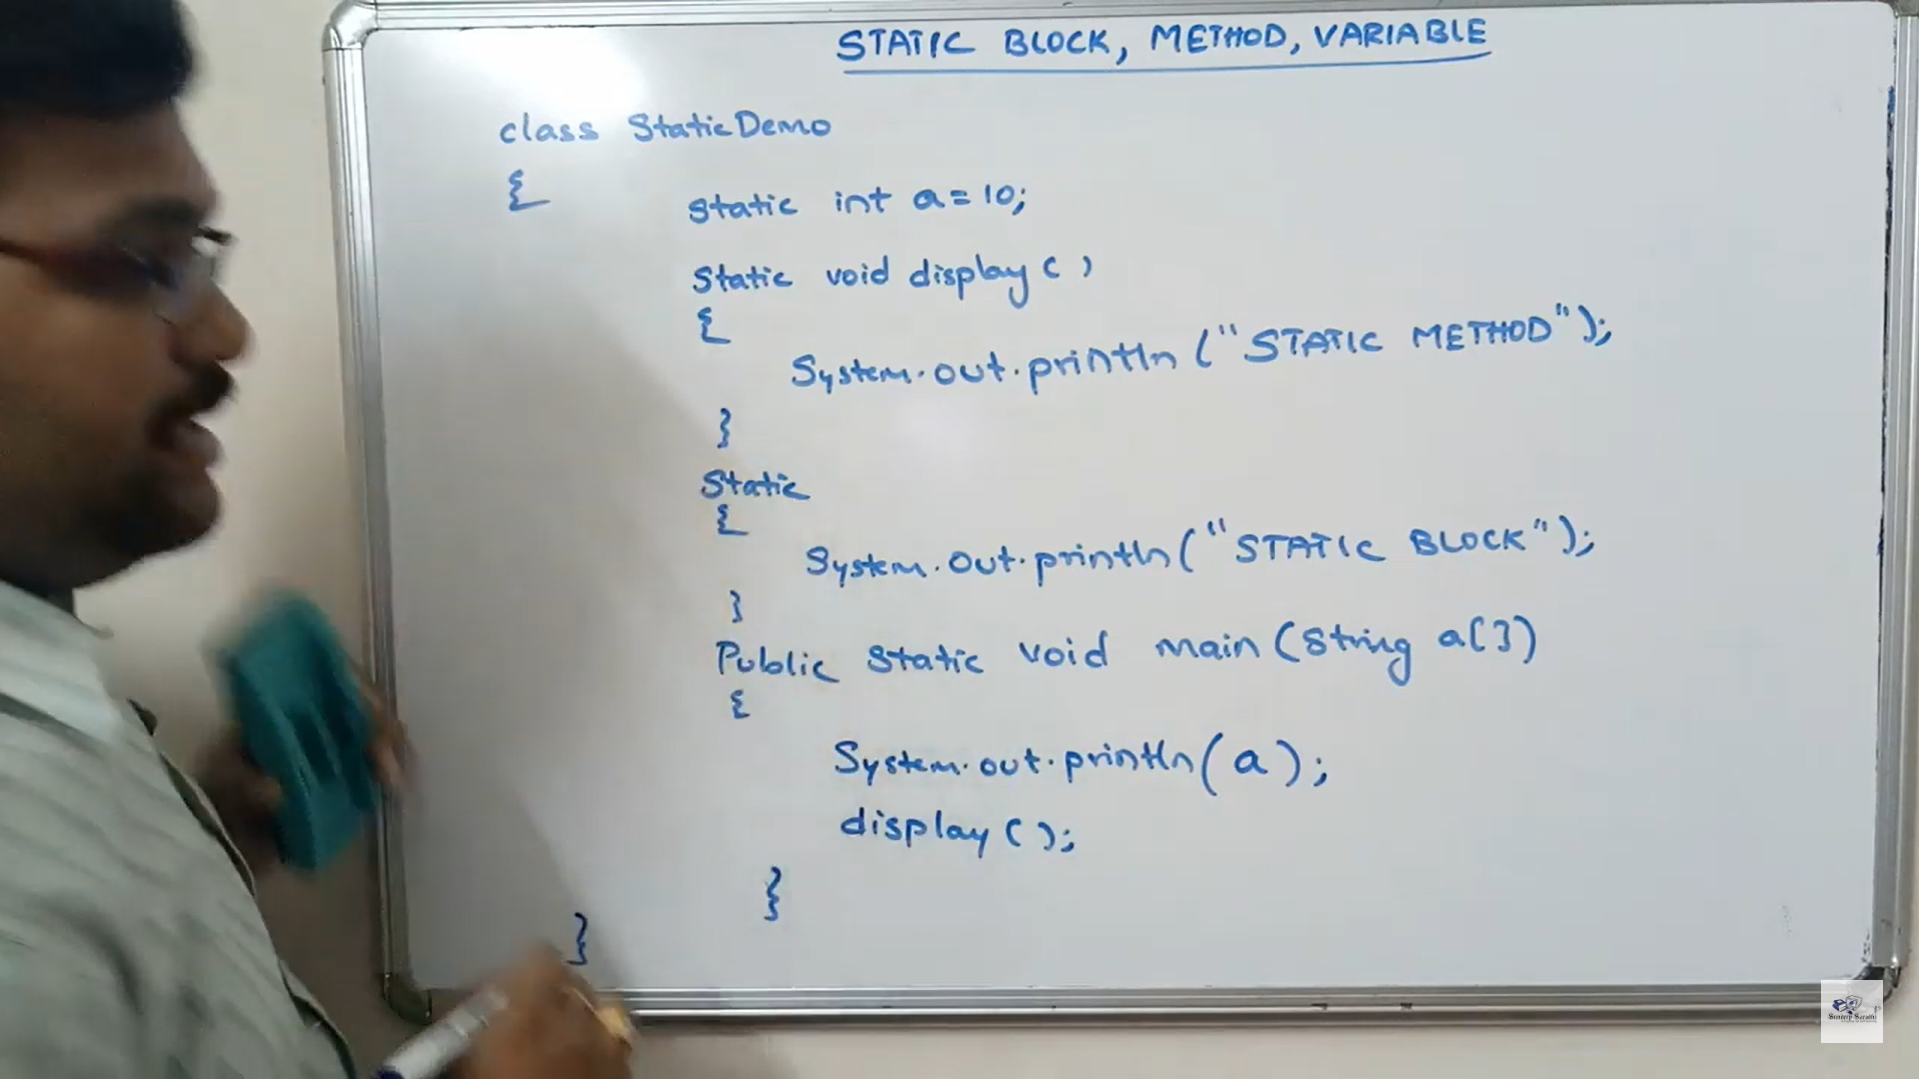 STATIC BLOCK, METHOD, VARIABLE
class StaticDemo
{
static int a=10;
Static void display ( )
{
System.out.println ("STATIC METHOD");
}
Static
{
System.out.println("STATIC BLOCK");
}
Public static void main (String a[])
{
System.out.println(a);
display ( );
}
}
Sundeep Saradhi